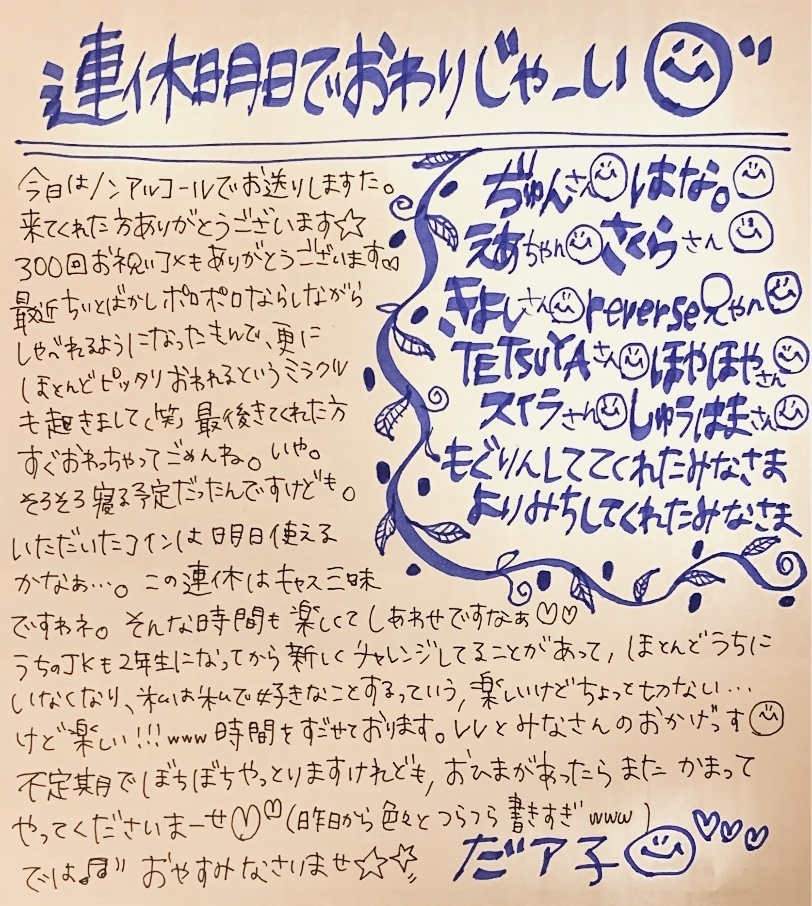 連休明日でおわりじゃーい
今日はノンアルコールでお送りしますた。
来てくれた方ありがとうございます☆
300回お祝いコメもありがとうございます♡
最近ちぃとばかしポロポロならしながら
しゃべれるようになったもんで、更に
ほとんどピッタリおわれるというミラクル
も起きまして(笑) 最後きてくれた方
すぐおわっちゃってごめんね。いや。
そろそろ寝る予定だったんですけども。
いただいたコインは明日使える
かなぁ…。この連休はキャス三昧
ですわネ。そんな時間も楽しくてしあわせですなぁ♡♡
うちのJKも2年生になってから新しくチャレンジしてることがあって, ほとんどうちに
いなくなり、私は私で好きなことするっていう, 楽しいけどちょっと切ない…
けど楽しい!!!www 時間をすごせております。レレとみなさんのおかげっす
不定期でぼちぼちやっとりますけれども, おひまがあったら また かまって
やってくださいまーせ♡ (昨日から色々とつらつら書きすぎwww)
では♫ おやすみなさいませ☆☆
ぢゅんさん はな。
えあちゃん さくらさん
きよしさん reverseえゃん
TETSUYAさん ほやほやさん
スイラさん しゅうはまさん
もぐりんしててくれたみなさま
よりみちしてくれたみなさま
だア子 ♡♡♡